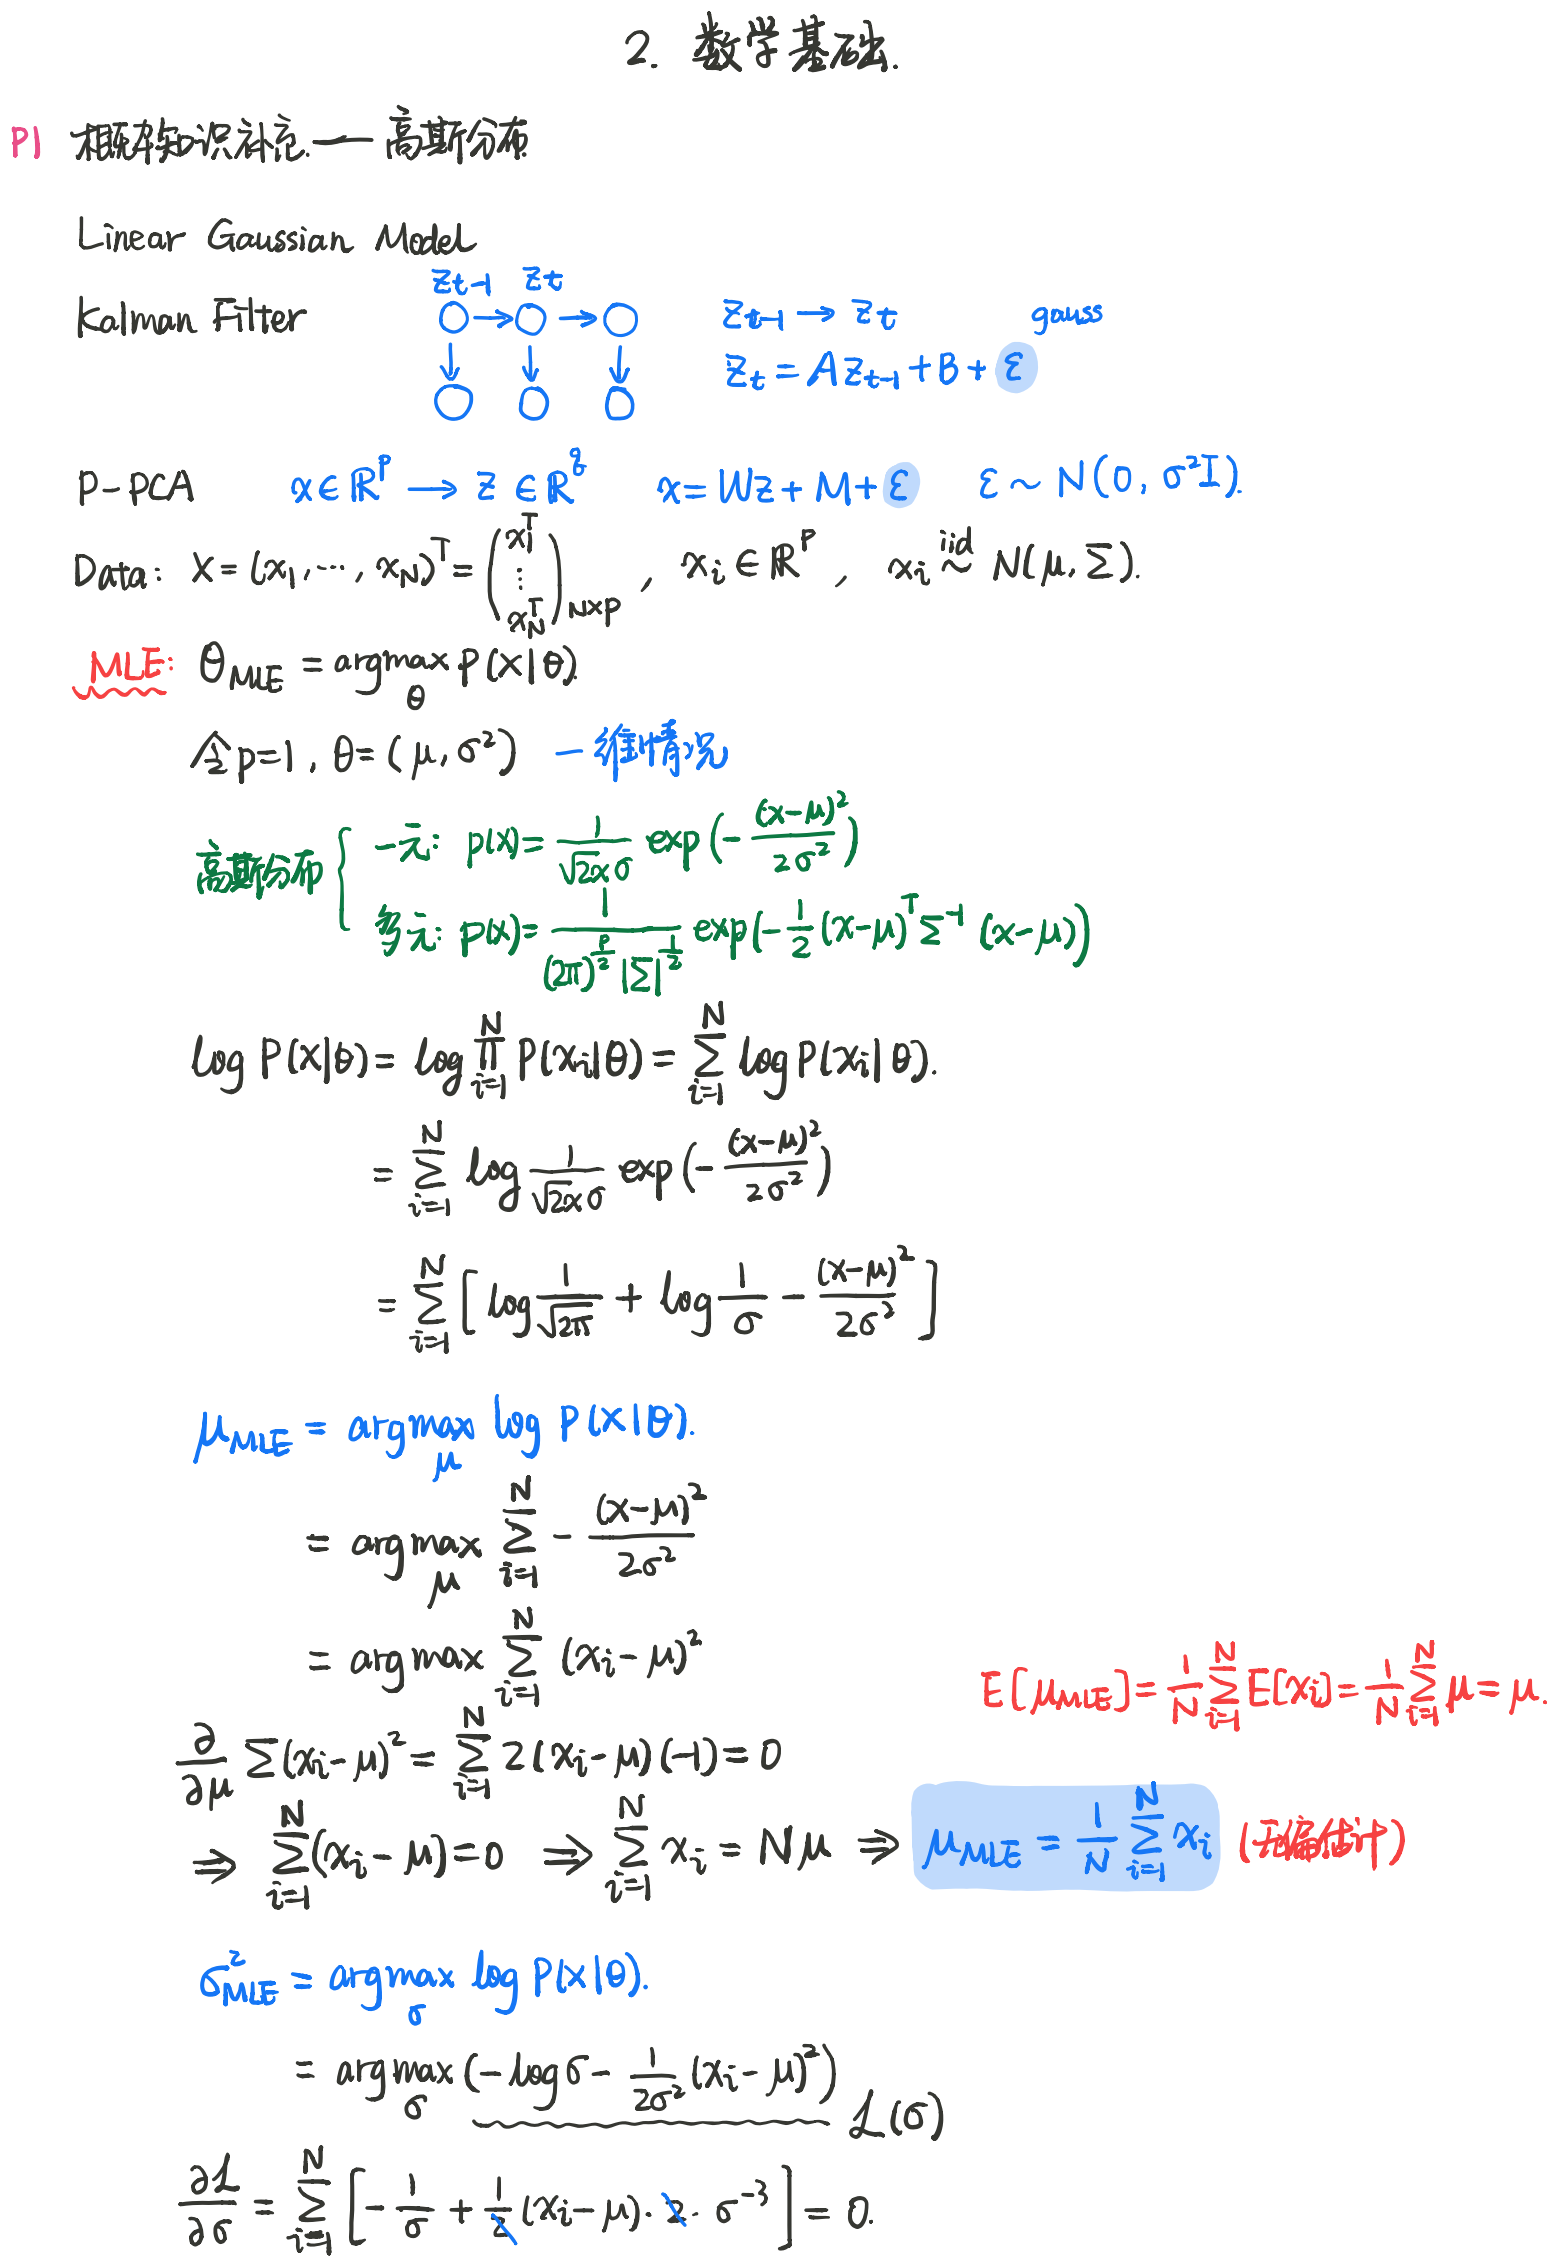 2. 数学基础.
P1 概率知识补充 — 高斯分布
Linear Gaussian Model
Kalman Filter z_{t-1} z_t z_{t-1} → z_t gauss
z_t = A z_{t-1} + B + ε
P-PCA x ∈ ℝ^p → z ∈ ℝ^q x = Wz + M + ε ε ~ N(0, σ²I).
Data: X = (x_1, ⋯, x_N)^T = (x_1^T ⋮ x_N^T)_{N×p} , x_i ∈ ℝ^p , x_i ~^{iid} N(μ, Σ).
MLE: θ_{MLE} = argmax_θ P(X|θ).
令 p=1, θ=(μ, σ²) 一维情况
高斯分布 { 一元: p(x) = \frac{1}{\sqrt{2π}σ} exp(-\frac{(x-μ)²}{2σ²})
多元: p(x) = \frac{1}{(2π)^{\frac{p}{2}} |Σ|^{\frac{1}{2}}} exp(-\frac{1}{2}(x-μ)^T Σ^{-1} (x-μ))
log P(X|θ) = log ∏_{i=1}^{N} P(x_i|θ) = ∑_{i=1}^{N} log P(x_i|θ).
= ∑_{i=1}^{N} log \frac{1}{\sqrt{2π}σ} exp(-\frac{(x-μ)²}{2σ²})
= ∑_{i=1}^{N} [log \frac{1}{\sqrt{2π}} + log \frac{1}{σ} - \frac{(x-μ)²}{2σ²}]
μ_{MLE} = argmax_μ log P(X|θ).
= argmax_μ ∑_{i=1}^{N} -\frac{(x-μ)²}{2σ²}
= argmax ∑_{i=1}^{N} (x_i-μ)²
E[μ_{MLE}] = \frac{1}{N} ∑_{i=1}^{N} E[x_i] = \frac{1}{N} ∑_{i=1}^{N} μ = μ.
\frac{∂}{∂μ} ∑(x_i-μ)² = ∑_{i=1}^{N} 2(x_i-μ)(-1) = 0
⇒ ∑_{i=1}^{N} (x_i-μ) = 0 ⇒ ∑_{i=1}^{N} x_i = Nμ ⇒ μ_{MLE} = \frac{1}{N} ∑_{i=1}^{N} x_i (无偏估计)
σ²_{MLE} = argmax_σ log P(X|θ).
= argmax_σ (-log σ - \frac{1}{2σ²}(x_i-μ)²) ℒ(σ)
\frac{∂ℒ}{∂σ} = ∑_{i=1}^{N} [-\frac{1}{σ} + \frac{1}{2}(x_i-μ)·2·σ^{-3}] = 0.